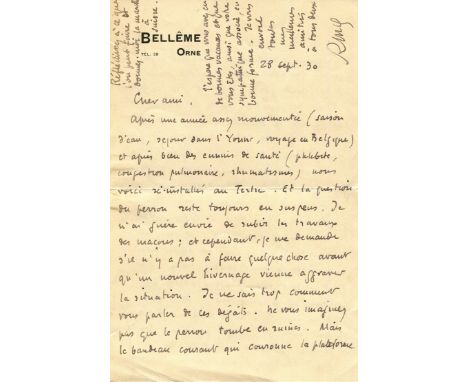 BELLÊME
TÉL. 28 ORNE
28 Sept. 30
Cher ami.
Après une année assez mouvementée (saison
d'eau, séjour dans l'Yonne, voyage en Belgique)
et après bien des ennuis de santé (phlébite,
congestion pulmonaire, rhumatismes) nous
voici ré-installés au Tertre. Et la question
du perron reste toujours en suspens. Je
n'ai guère envie de subir les travaux
des maçons ; et cependant, je me demande
s'il n'y a pas à faire quelque chose avant
qu'un nouvel hivernage vienne aggraver
la situation. Je ne sais trop comment
vous parler de ces dégâts. Ne vous imaginez
pas que le perron tombe en ruines. Mais
le bandeau courant qui couronne la plateforme
Réfléchissez à ce que
l'on peut faire et
donnez-moi la marche à
suivre.
J'espère que vous avez eu
de bonnes vacances et que
vous êtes, ainsi que votre
sympathique associé, en
bonne forme. Je vous
envoie
toutes
mes
meilleures
amitiés
à tous deux
RMG